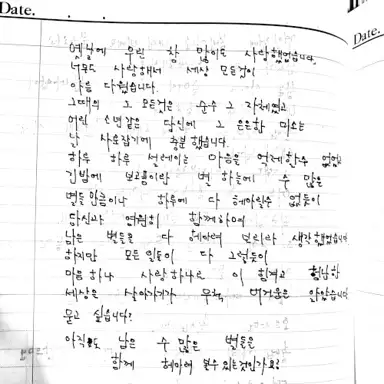 Date.
Date.
옛날에 우린 참 많이도 사랑했었습니다.
너무도 사랑해서 세상 모든것이
아름다웠습니다.
그때의 그 모든것은 순수 그 자체였고
어린 소년같은 당신에 그 은은한 미소는
날 사로잡기에 충분했습니다.
하루 하루 설레이는 마음을 억제할수 없었고
긴밤에 보고픔이란 별 하늘에 수 많은
별들 만큼이나 하루에 다 헤아릴수 없듯이
당신과 영원히 함께하여
남은 별들을 다 헤아려 보리라 생각했었습니다.
하지만 모든일들이 다 그렇듯이
마음하나 사랑하나로 이 힘겨고 험난한
세상은 살아가기가 무척 버거움은 않았습니다
묻고 싶습니다?
아직도 남은 수 많은 별들을
함께 헤아려 볼수 있는것인가요?